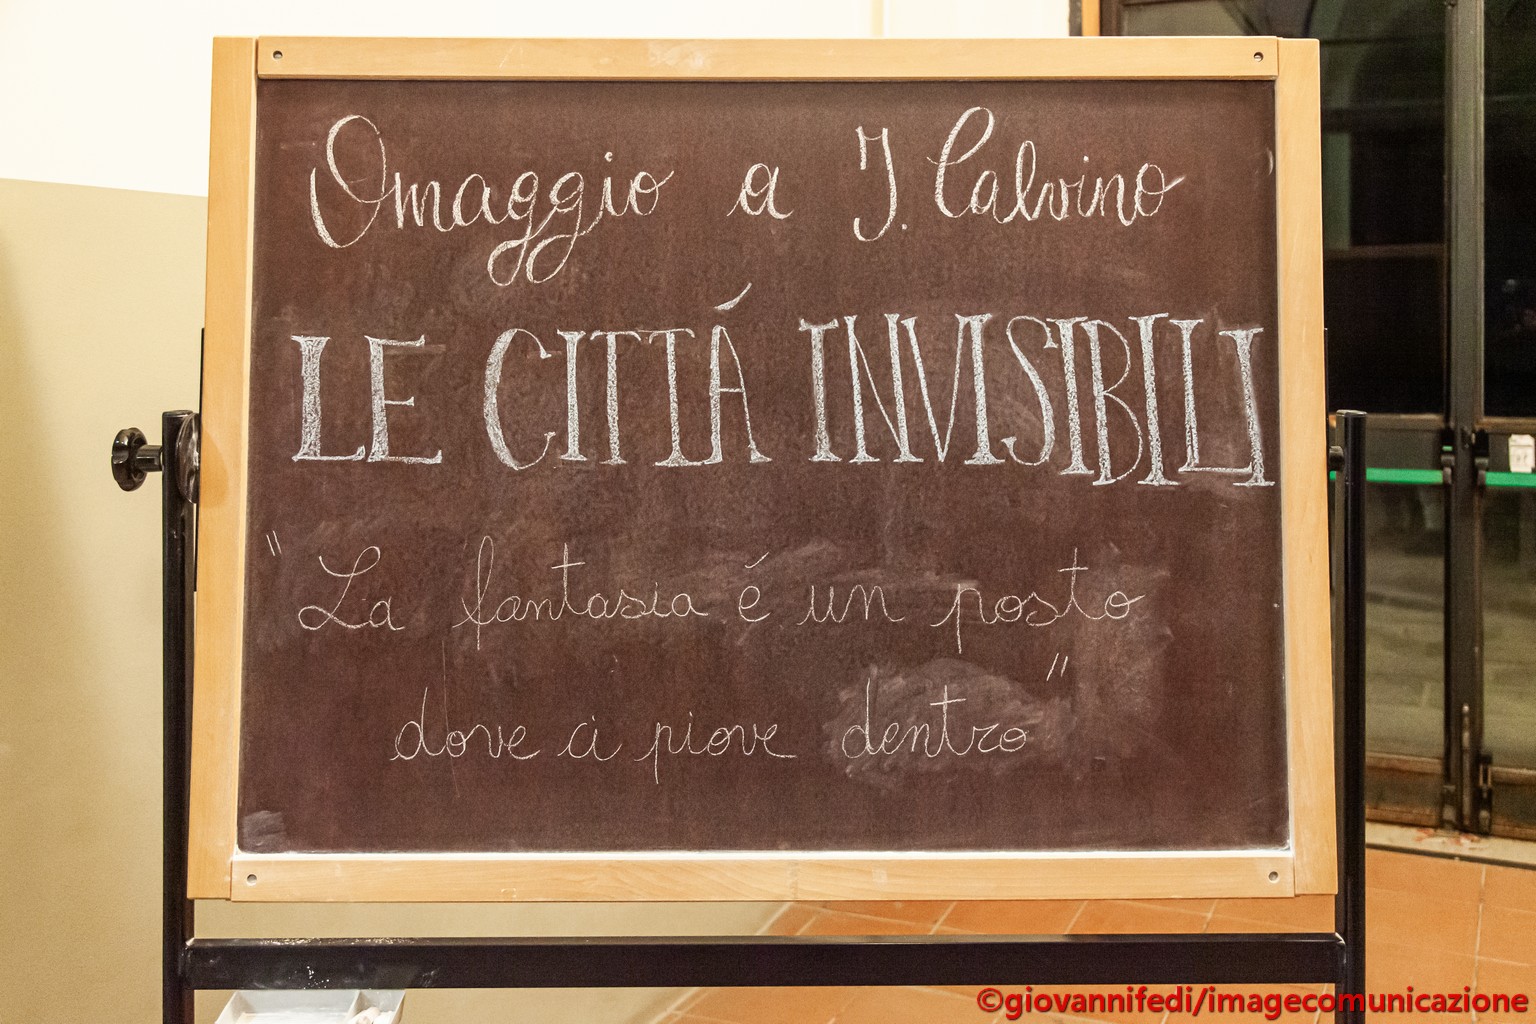 Omaggio a I. Calvino
LE CITTÁ INVISIBILI
"La fantasia é un posto
dove ci piove dentro"
©giovannifedi/imagecomunicazione